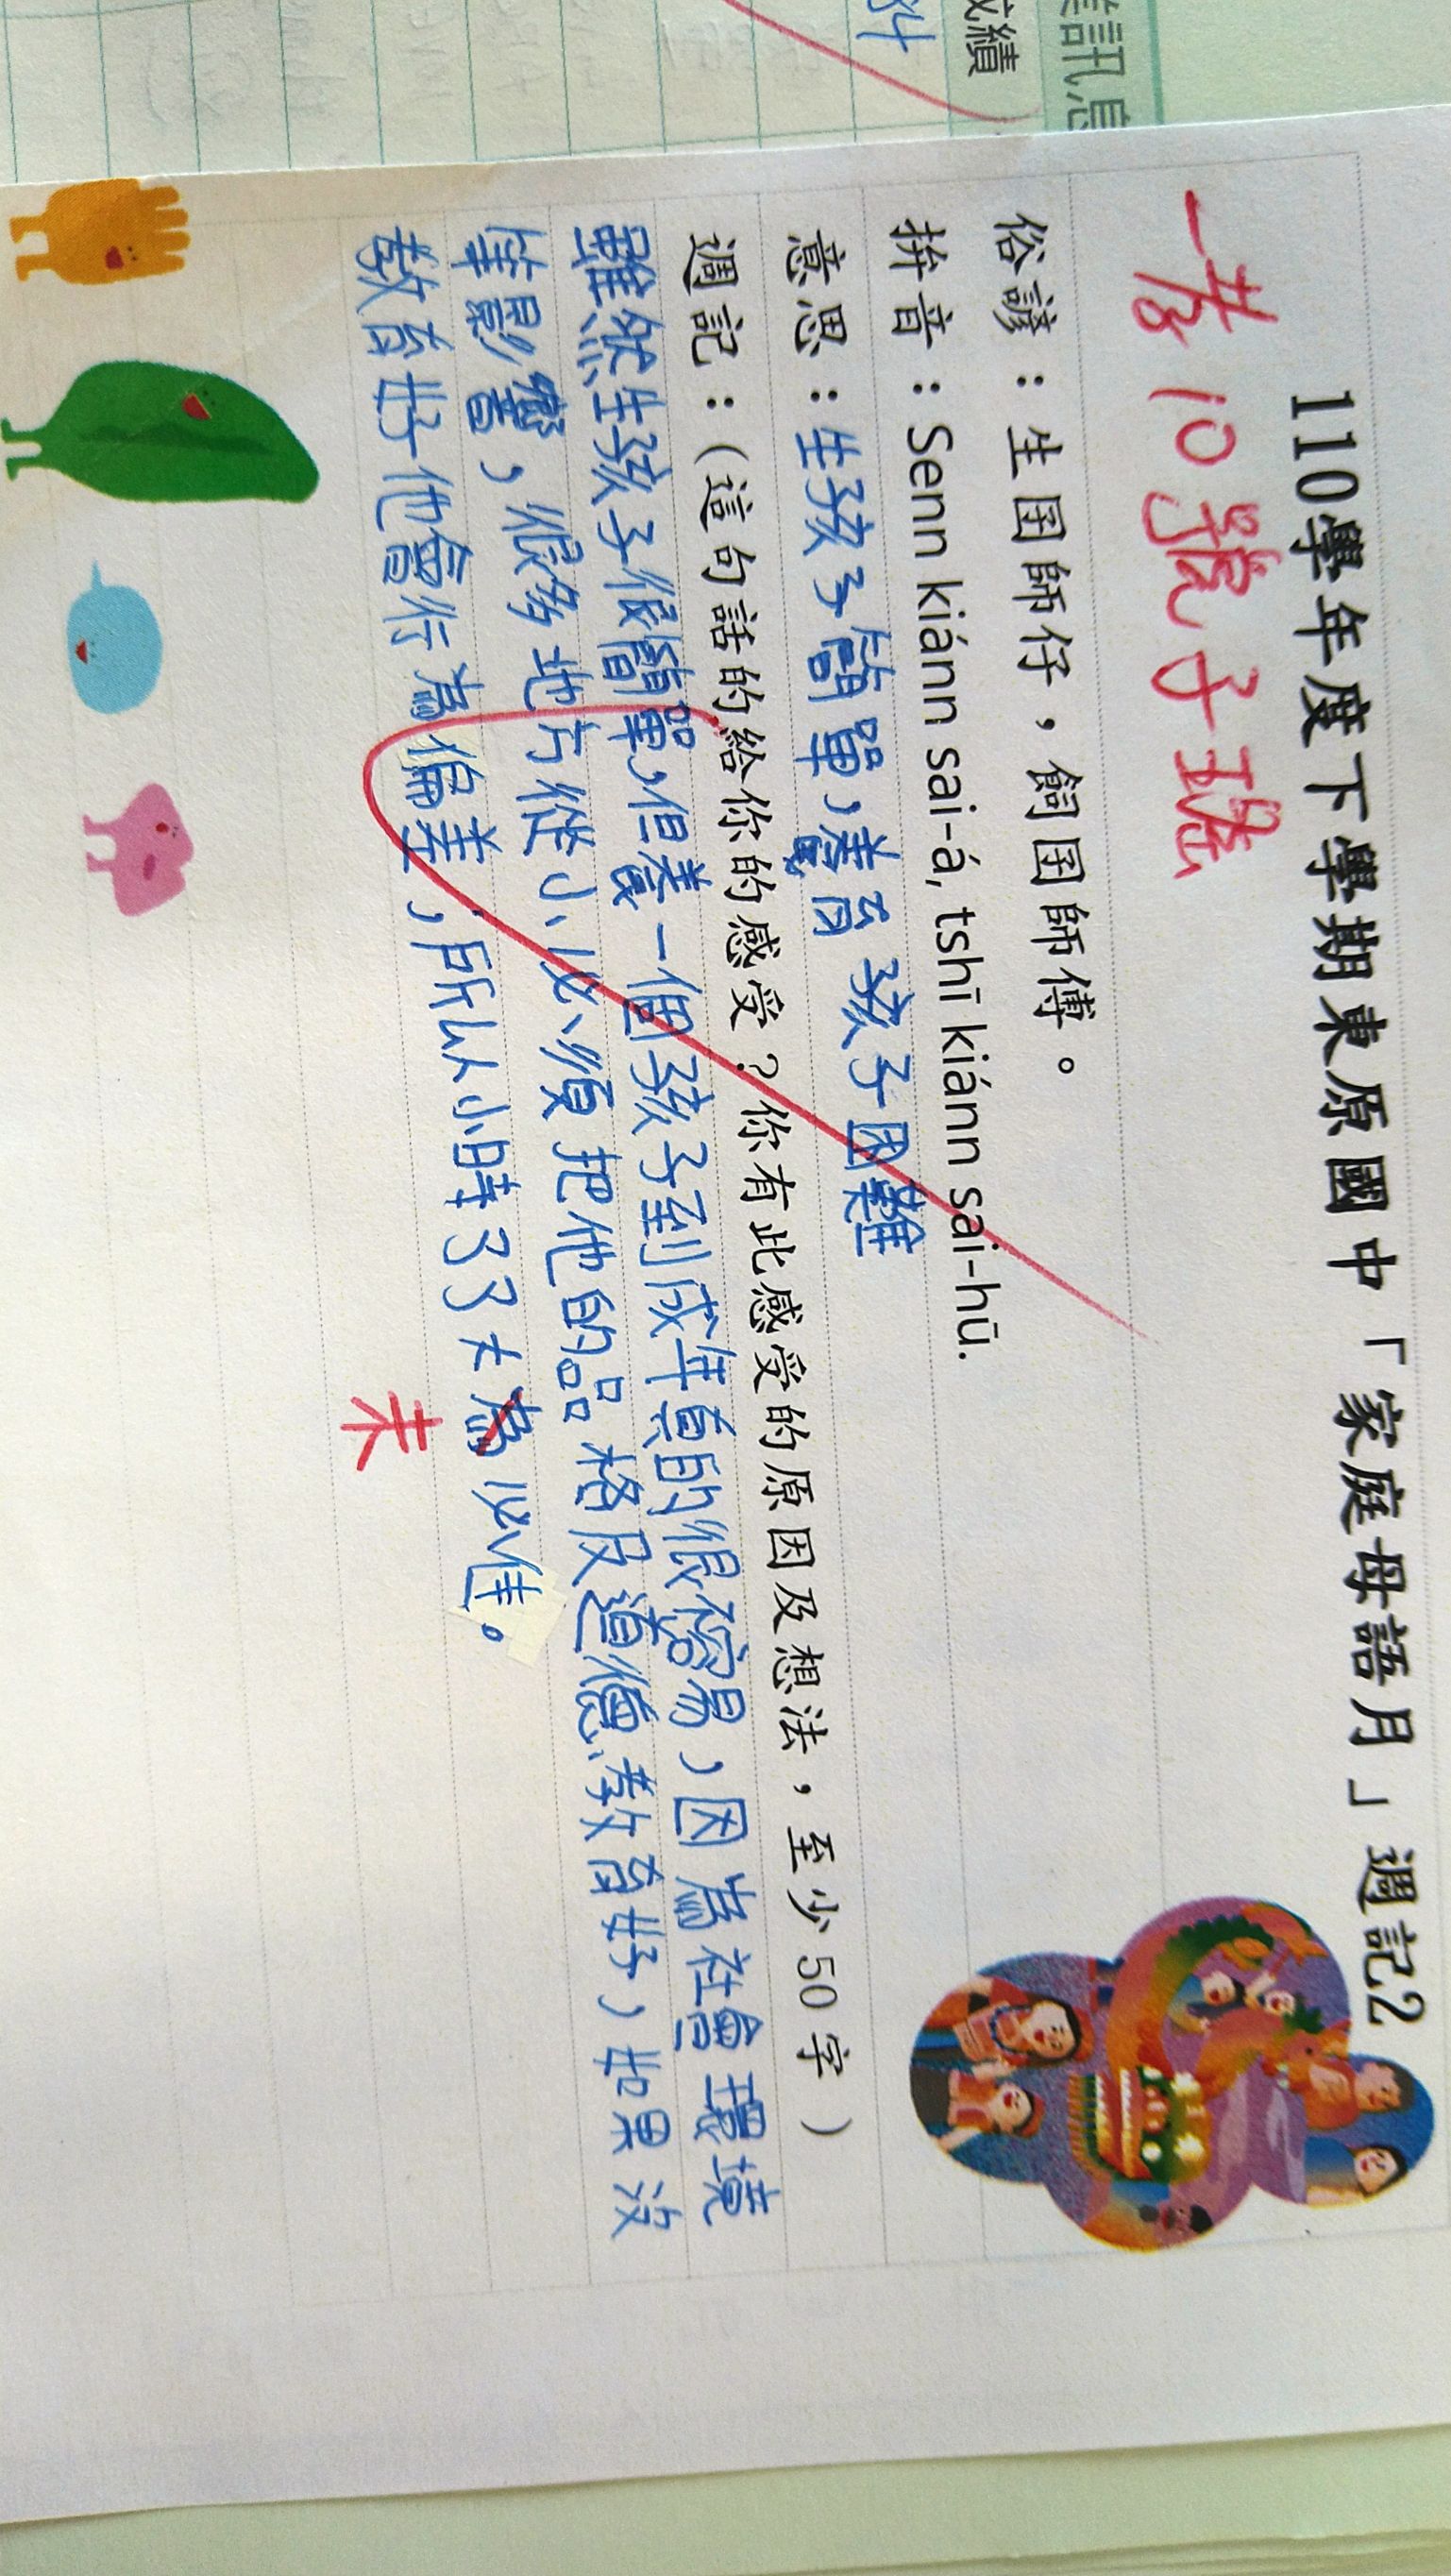 訊息
成績
110學年度下學期東原國中「家庭母語月」週記2
一孝10號子瑤
俗諺：生囝師仔，飼囝師傅。
拚音：Senn kiánn sai-á, tshī kiánn sai-hū.
意思：生孩子簡單，養育孩子困難
週記：(這句話的給你的感受？你有此感受的原因及想法，至少50字)
雖然生孩子很簡單，但養一個孩子到成年真的很容易，因為社會環境
影響，很多地方從小必須把他的品格及道德教育好，如果沒
教育好他會行為偏差，所以小時了了大為必佳。
未